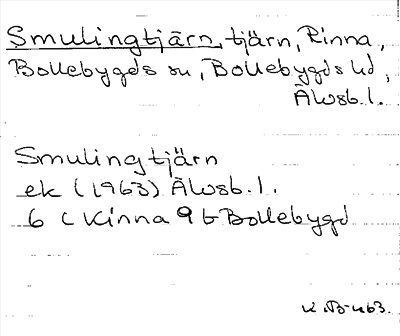 Smulingtjärn, tjärn, Rinna,
Bollebygds sn, Bollebygds hd,
Älvsb. l.
Smulingtjärn
ek (1963) Älvsb. l.
6 C Kinna 9 b Bollebygd